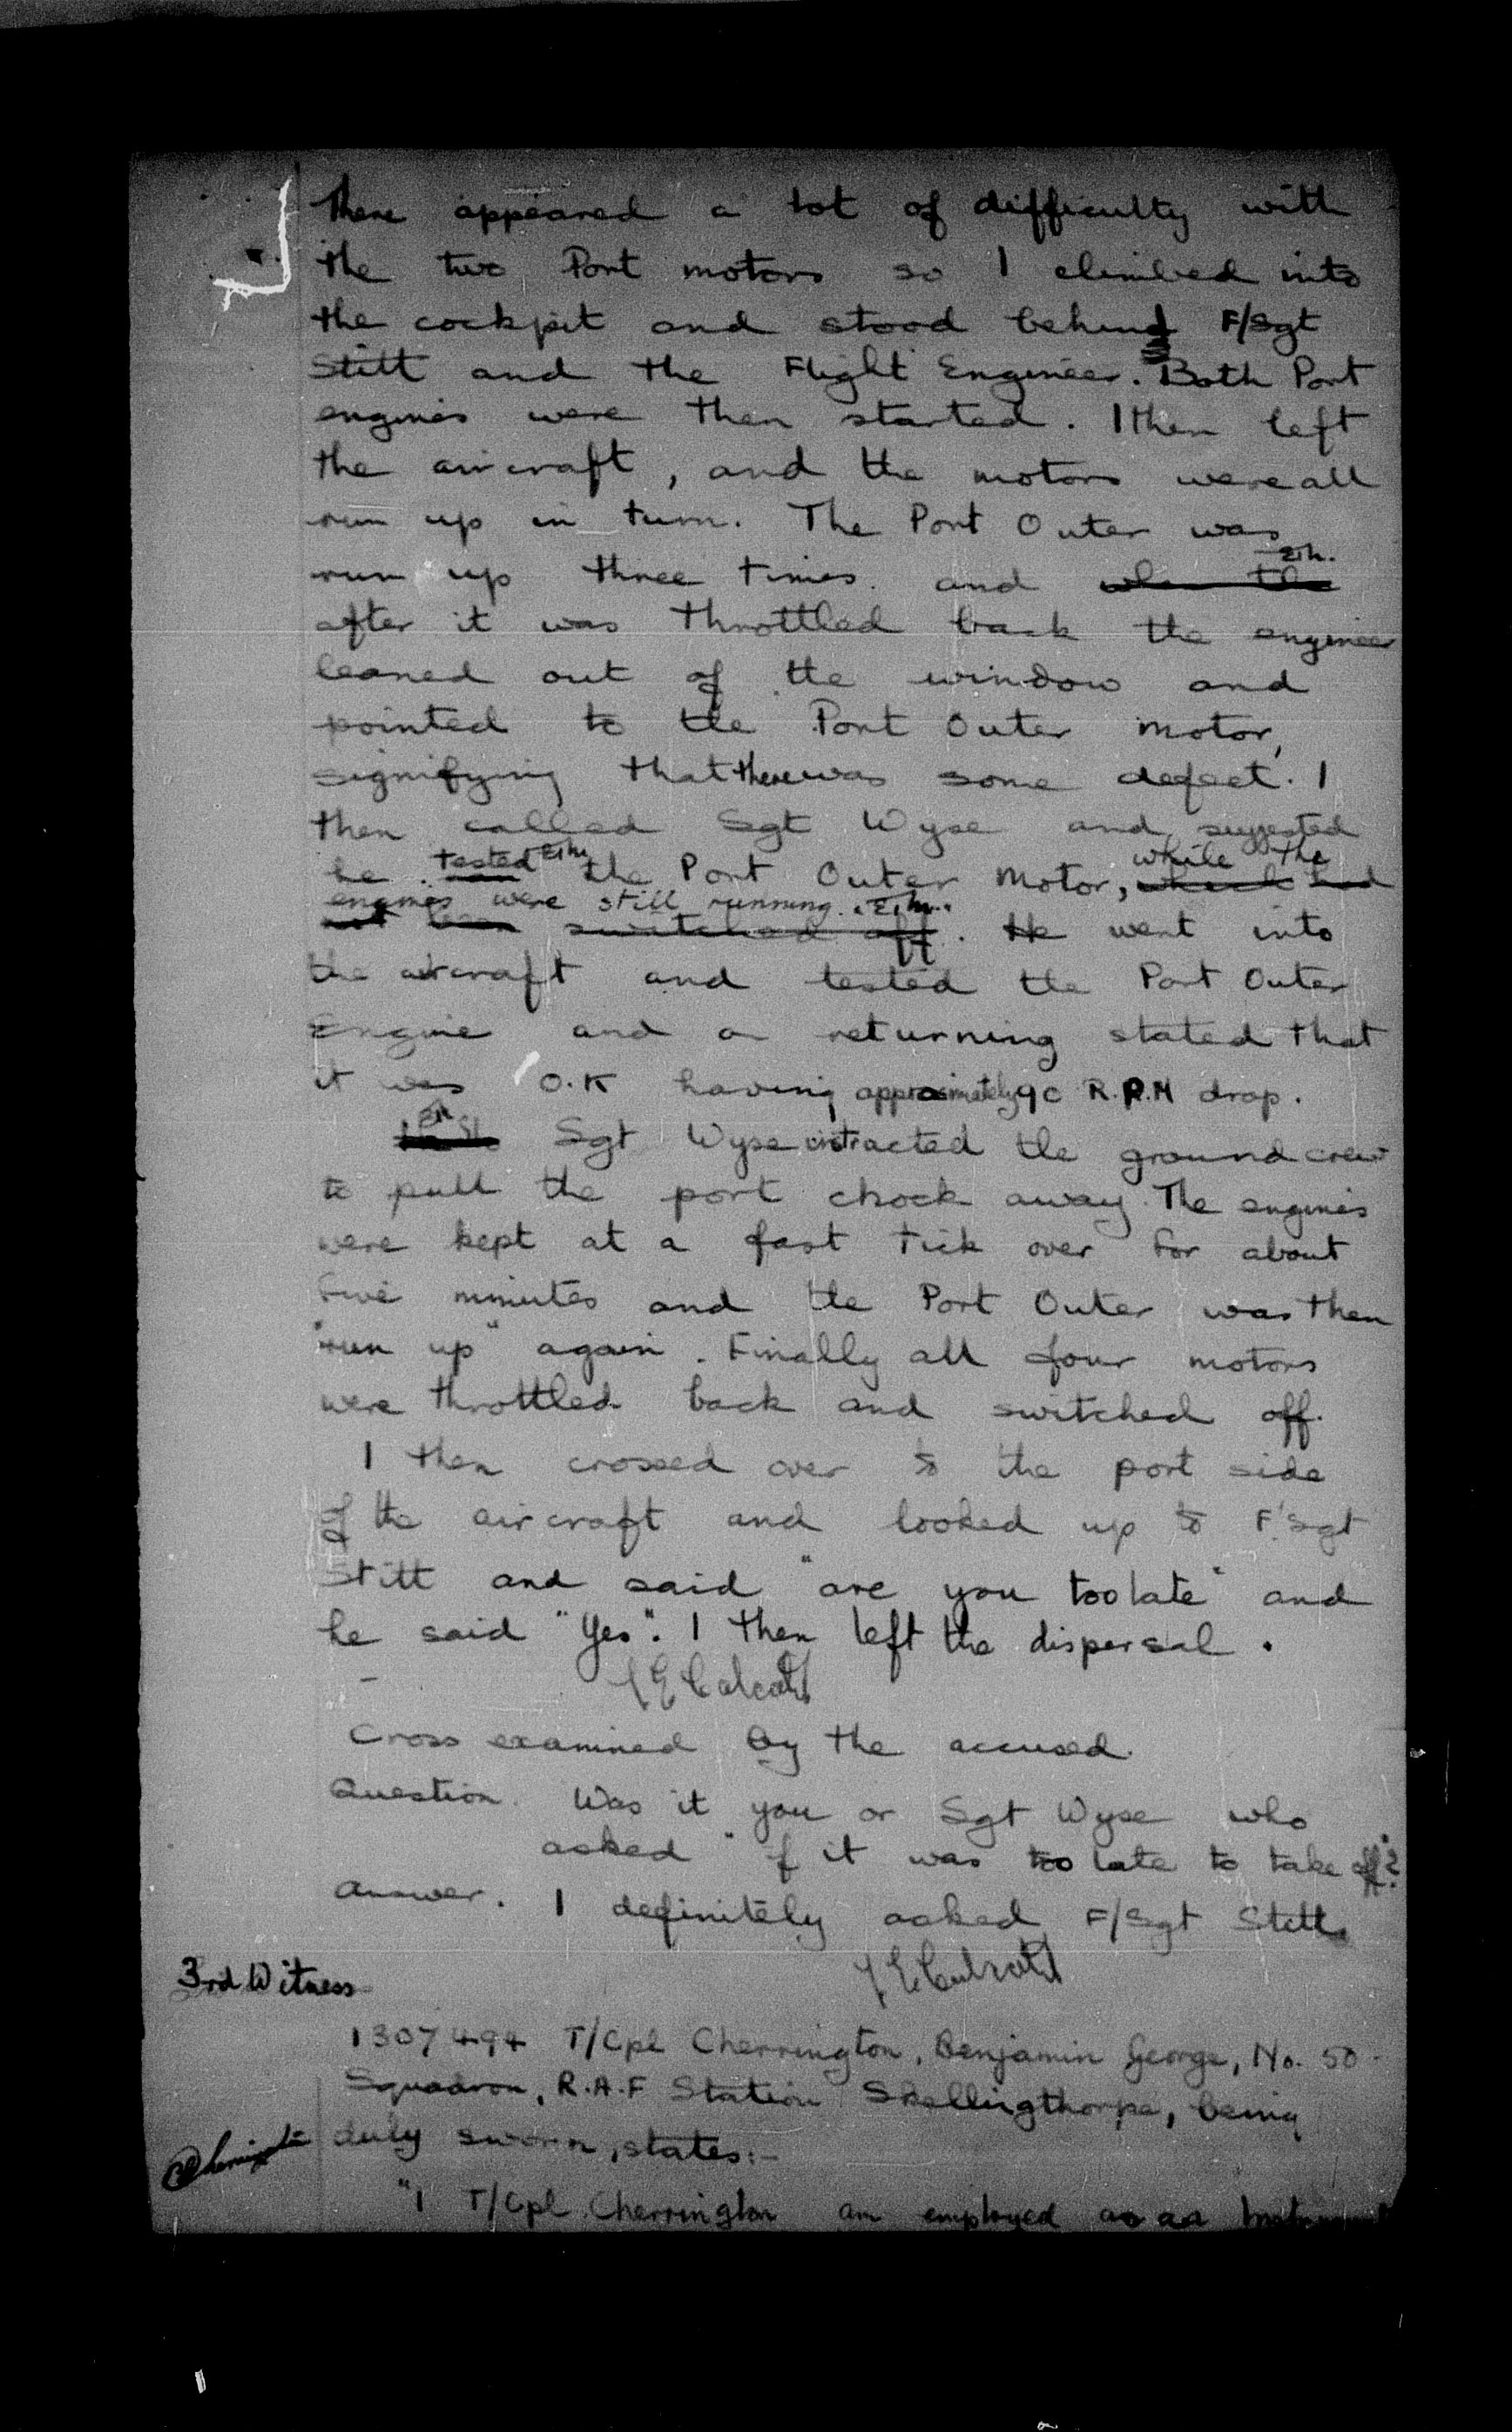 there appeared a lot of difficulty with
the two Port motors so I climbed into
the cockpit and stood behind F/Sgt
Stitt and the Flight Engineer. Both Port
engines were then started. I then left
the aircraft, and the motors were all
run up in turn. The Port Outer was
run up three times and when the
after it was throttled back the engineer
leaned out of the window and
pointed to the Port Outer motor,
signifying that there was some defect. I
then called Sgt Wyse and suggested
he tested the Port Outer Motor, while the
engines were still running.
not been switched off. He went into
the aircraft and tested the Port Outer
Engine and on returning stated that
it was O.K having approximately 90 R.P.M drop.
Sgt Wyse instructed the ground crew
to pull the port chock away. The engines
were kept at a fast tick over for about
five minutes and the Port Outer was then
"run up" again. Finally all four motors
were throttled back and switched off.
I then crossed over to the port side
of the aircraft and looked up to F/Sgt
Stitt and said "are you too late" and
he said "Yes". I then left the dispersal.
Cross examined by the accused.
Question. Was it you or Sgt Wyse who
asked "if it was too late to take off"?
Answer. I definitely asked F/Sgt Stitt.
3rd Witness
1307494 T/Cpl Cherrington, Benjamin George, No. 50
Squadron, R.A.F Station Skellingthorpe, being
duly sworn, states:-
"I T/Cpl Cherrington am employed as an